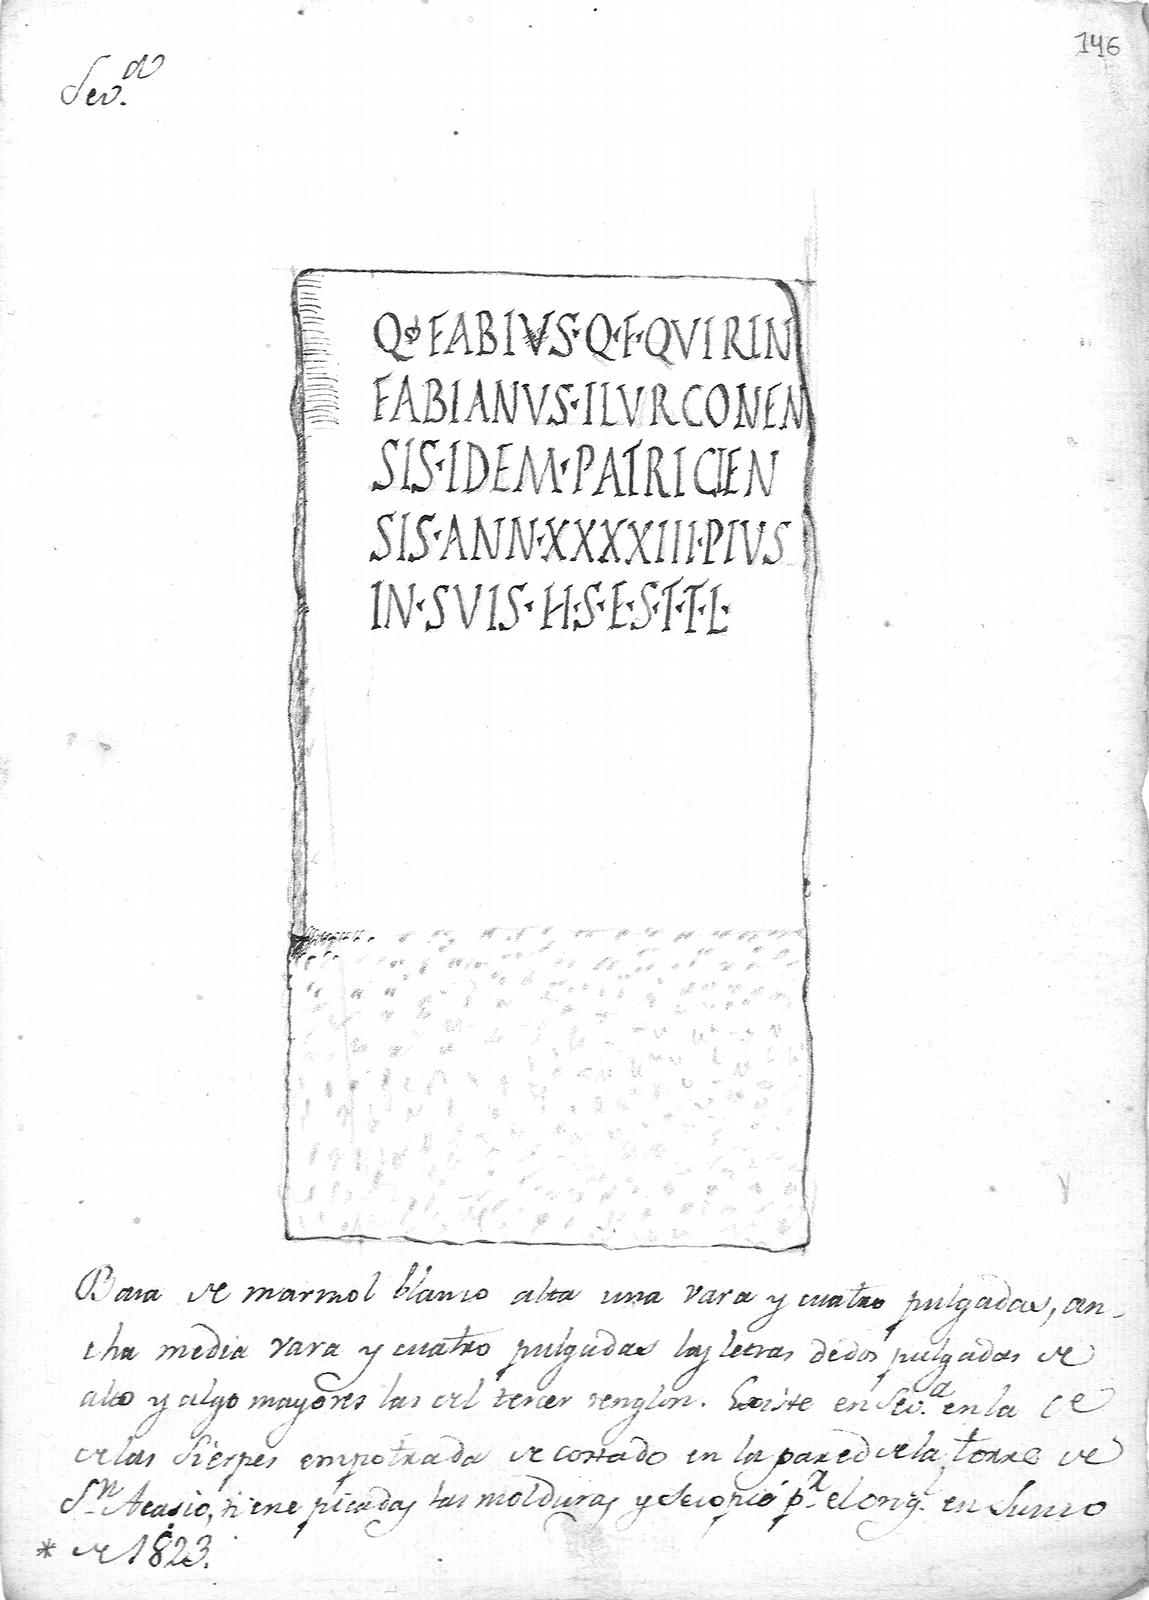 146
Sev.a
Q FABIVS·Q·F·QVIRIN
FABIANVS·ILVRCONEN
SIS·IDEM·PATRICIEN
SIS·ANN·XXXXIII·PIVS
IN·SVIS·H·S·E·S·T·T·L·
Basa de marmol blanco alta una vara y cuatro pulgadas, an-
cha media vara y cuatro pulgadas las letras de dos pulgadas de
alto y algo mayores las del tercer renglon. Existe en Sev.a en la Ce
de las Sierpes empotrada de costado en la pared de la torre de
Sn. Acasio, tiene picadas las molduras y se copió pr. el orig. en Junio
* de 1823.